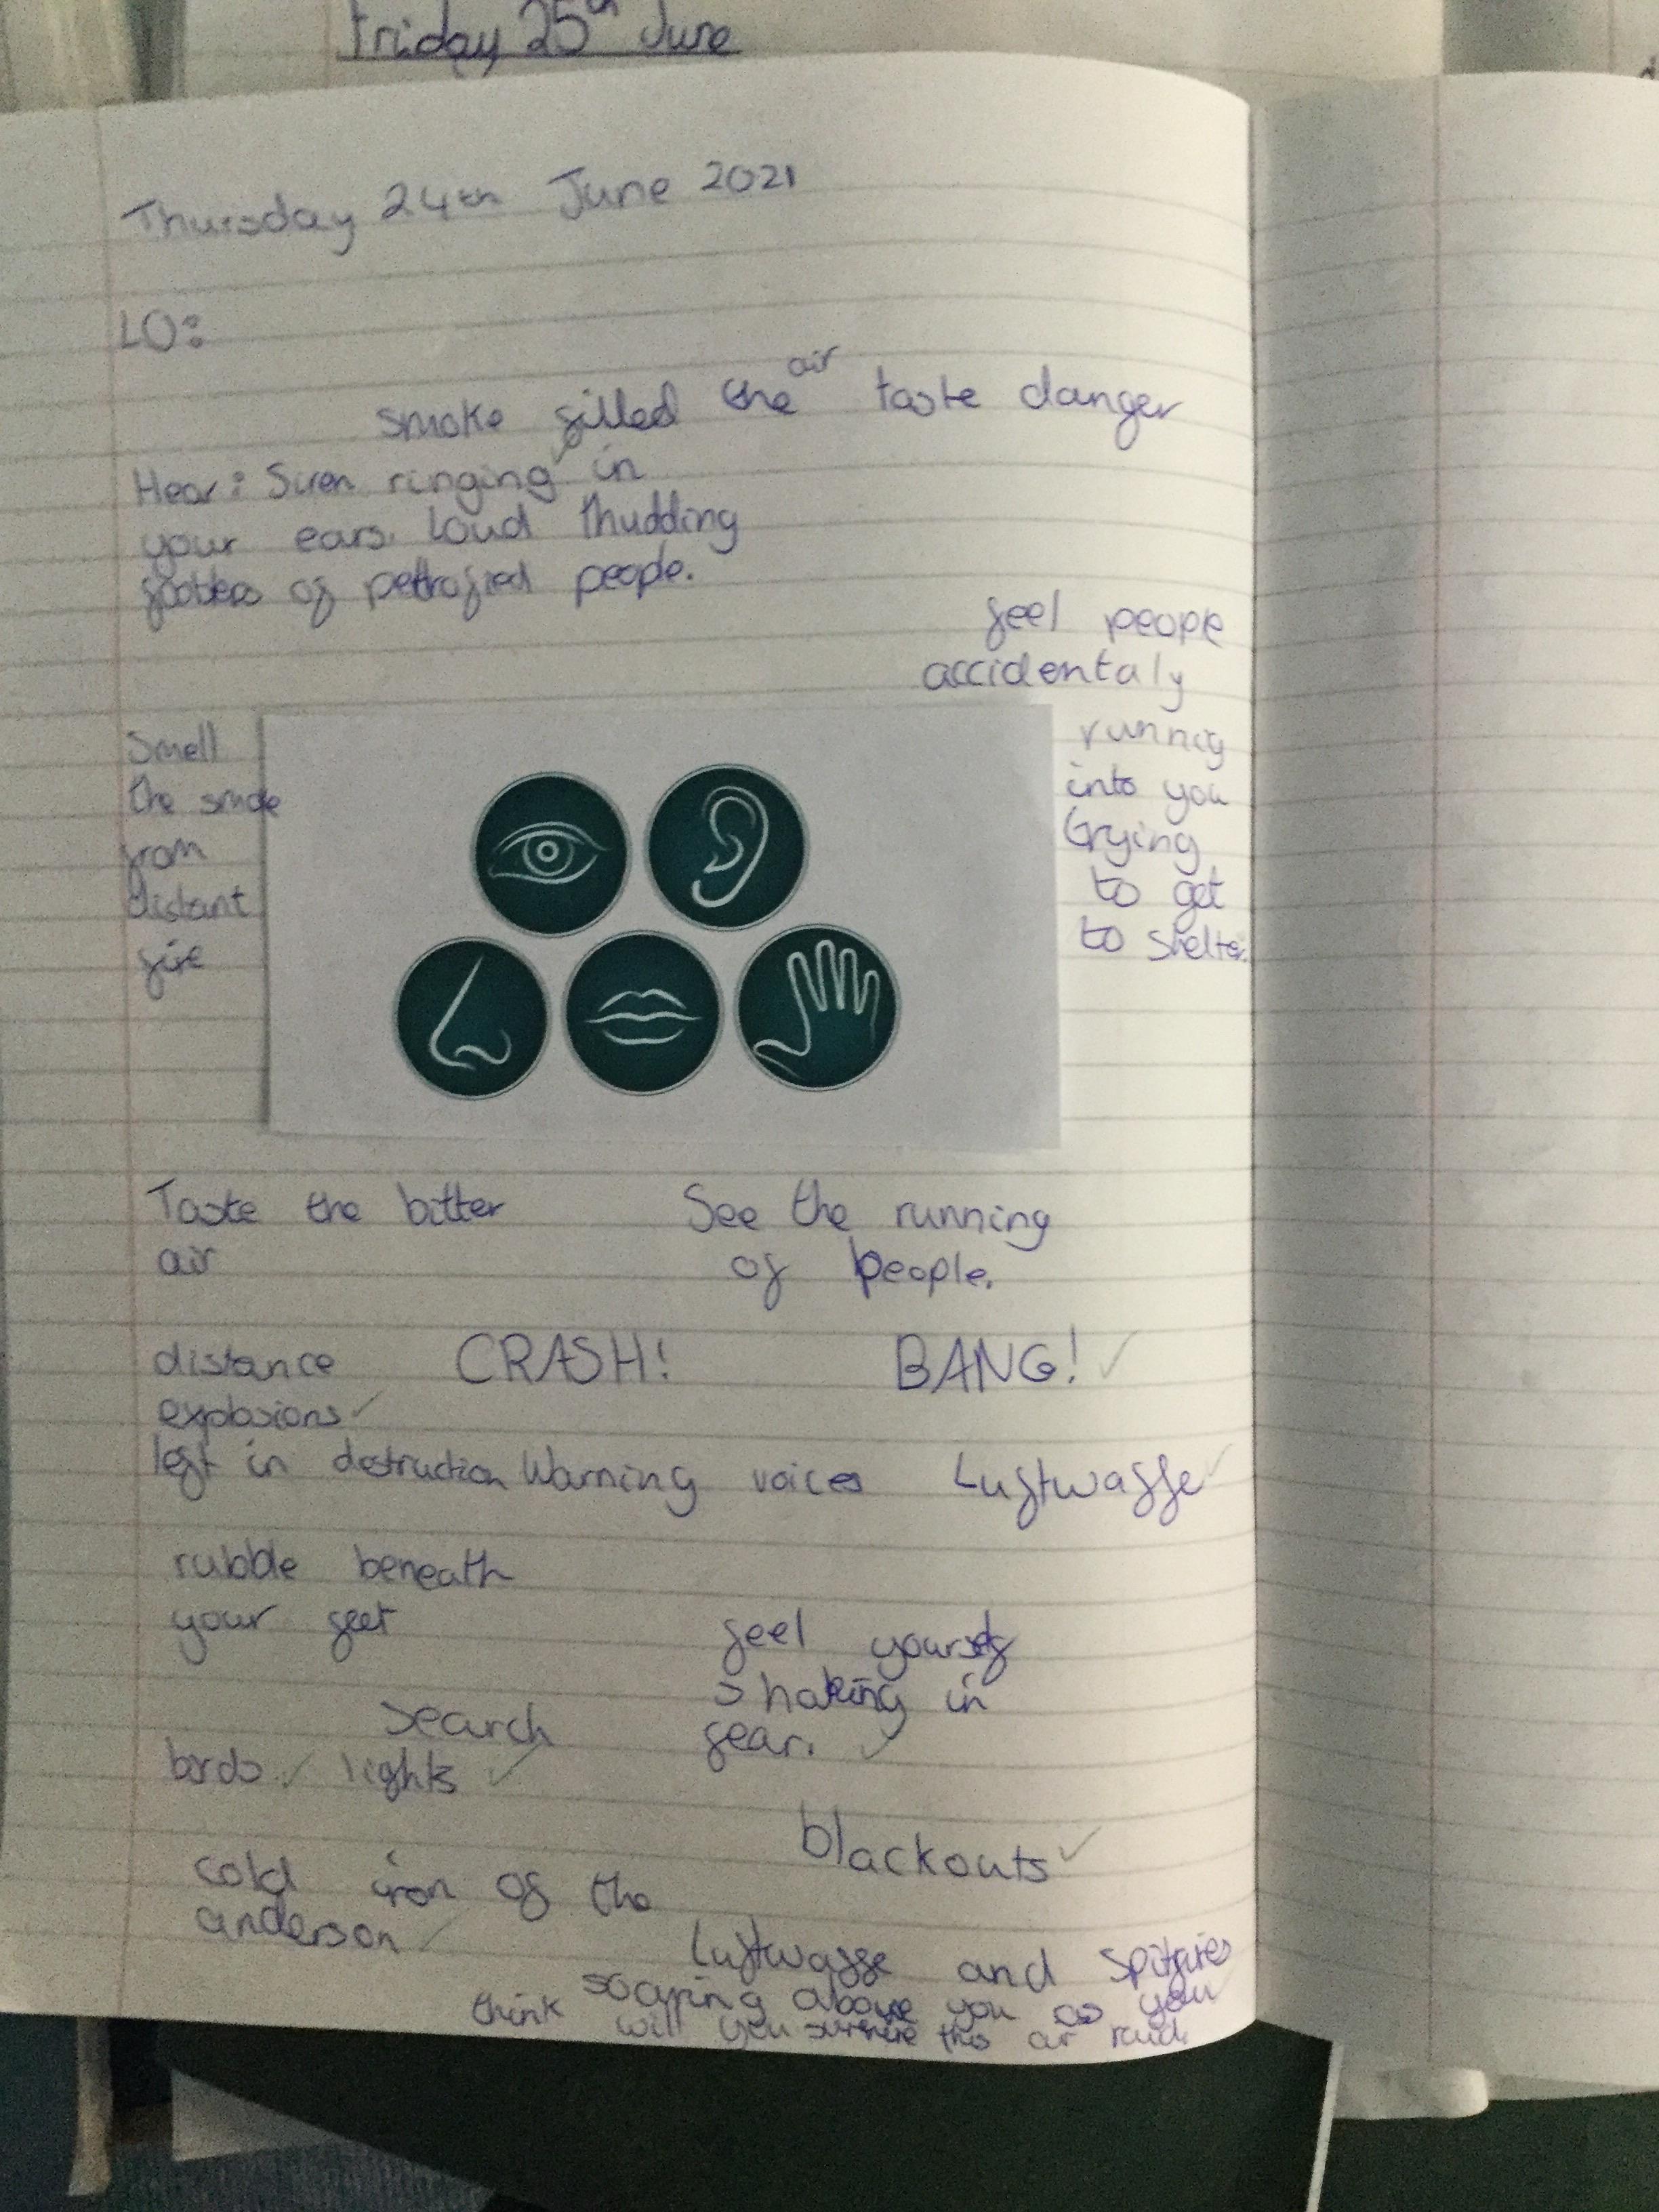 Friday 25th June
Thursday 24th June 2021
LO:
smoke filled the air taste danger
Hear: Siren ringing in
your ears. Loud thudding
footteps of pettrofied people.
feel people
accidentaly
running
into you
trying
to get
to shelter.
Smell
the smoke
from
distant
fire
Taste the bitter
air
See the running
of people.
distance
explosions
CRASH!
BANG!
left in destruction
Warning voices
Luftwaffe
rubble beneath
your feet
feel yourself
shaking in
fear.
search
lights
birds
blackouts
cold iron of the
anderson
Luftwaffe and Spitfires
soaring above you as you
think will you survive this air raid.